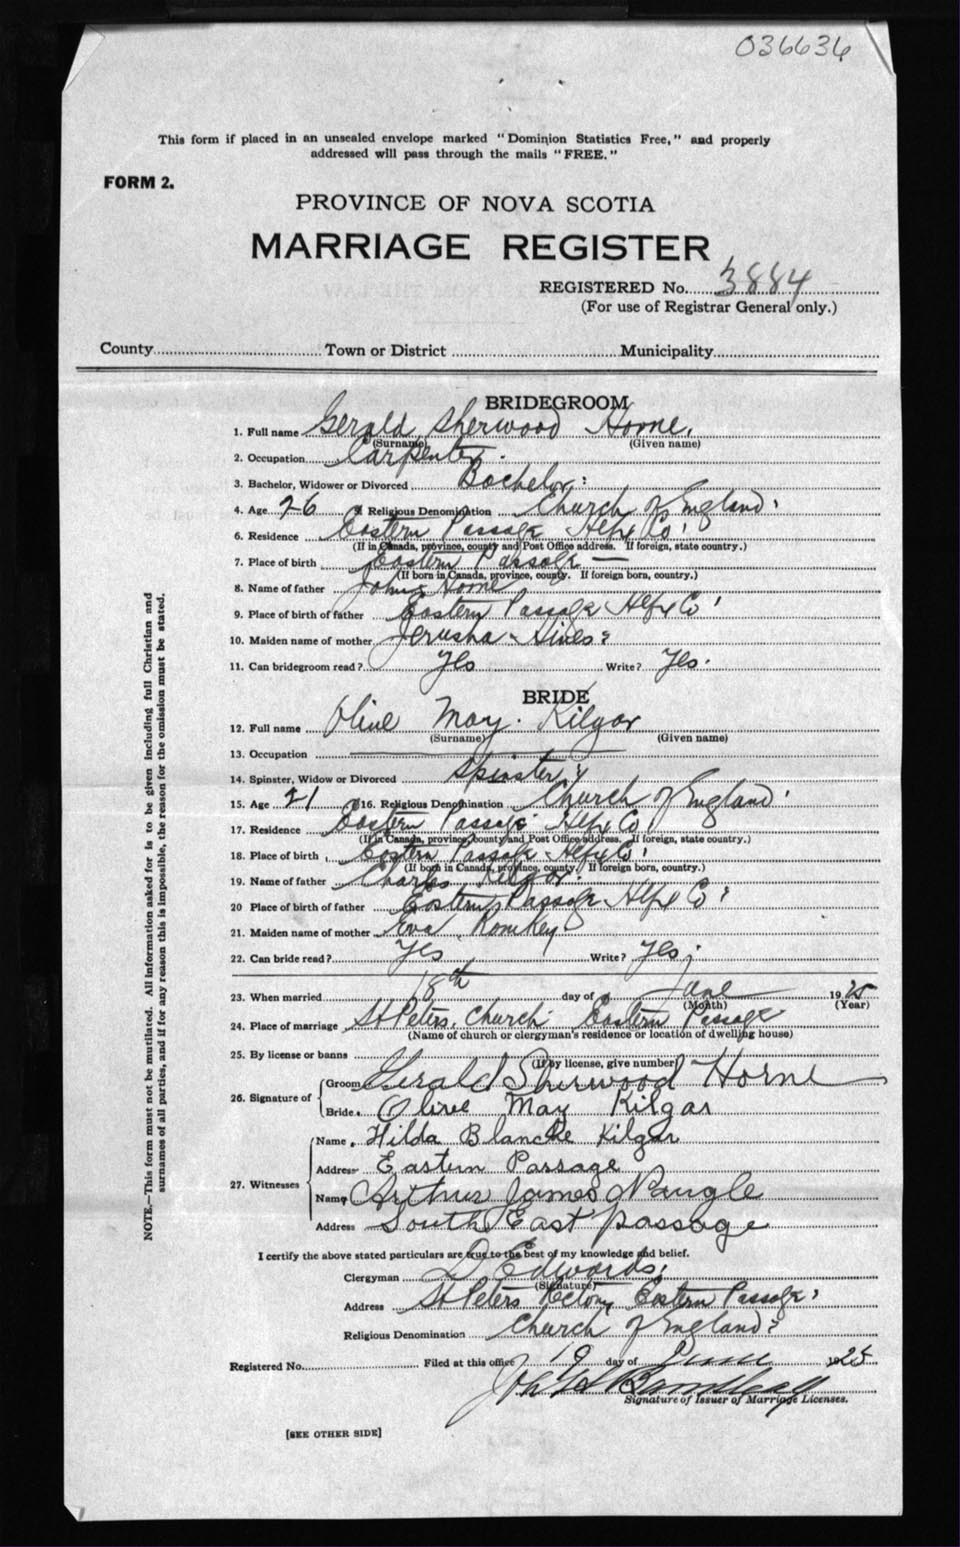 036636
This form if placed in an unsealed envelope marked "Dominion Statistics Free," and properly
addressed will pass through the mails "FREE."
FORM 2.
PROVINCE OF NOVA SCOTIA
MARRIAGE REGISTER
REGISTERED No. 3884
(For use of Registrar General only.)
County Town or District Municipality
BRIDEGROOM
1. Full name Gerald Sherwood Horne.
(Surname) (Given name)
2. Occupation Carpenter.
3. Bachelor, Widower or Divorced Bachelor
4. Age 26 Religious Denomination Church of England
6. Residence Eastern Passage Hlfx Co
(If in Canada, province, county and Post Office address. If foreign, state country.)
7. Place of birth Eastern Passage
(If born in Canada, province, county. If foreign born, country.)
8. Name of father John Horne
9. Place of birth of father Eastern Passage Hlfx Co
10. Maiden name of mother Jerusha
11. Can bridegroom read? Yes Write? Yes.
BRIDE
12. Full name Olive May Kilgar
(Surname) (Given name)
13. Occupation
14. Spinster, Widow or Divorced Spinster
15. Age 21 16. Religious Denomination Church of England
17. Residence Eastern Passage Hlfx Co
(If in Canada, province, county and Post Office address. If foreign, state country)
18. Place of birth Eastern Passage Hlfx Co
(If born in Canada, province, county. If foreign born, country.)
19. Name of father Charles Kilgar
20 Place of birth of father Eastern Passage Hlfx Co
21. Maiden name of mother Eva Romkey
22. Can bride read? Yes Write? Yes
23. When married 18th day of June 1925
(Month) (Year)
24. Place of marriage St Peters Church Eastern Passage
(Name of church or clergyman's residence or location of dwelling house)
25. By license or banns
(If by license, give number)
26. Signature of Groom Gerald Sherwood Horne
Bride Olive May Kilgar
27. Witnesses Name Hilda Blanche Kilgar
Address Eastern Passage
Name Arthur James Naugle
Address South East passage
I certify the above stated particulars are true to the best of my knowledge and belief.
Clergyman D Edwards
(Signature)
Address St Peters Rectory Eastern Passage
Religious Denomination Church of England
Registered No. Filed at this office 19 day of June 1925
Signature of Issuer of Marriage Licenses.
[SEE OTHER SIDE]
NOTE.—This form must not be mutilated. All information asked for is to be given including full Christian and
surnames of all parties, and if for any reason this is impossible, the reason for the omission must be stated.